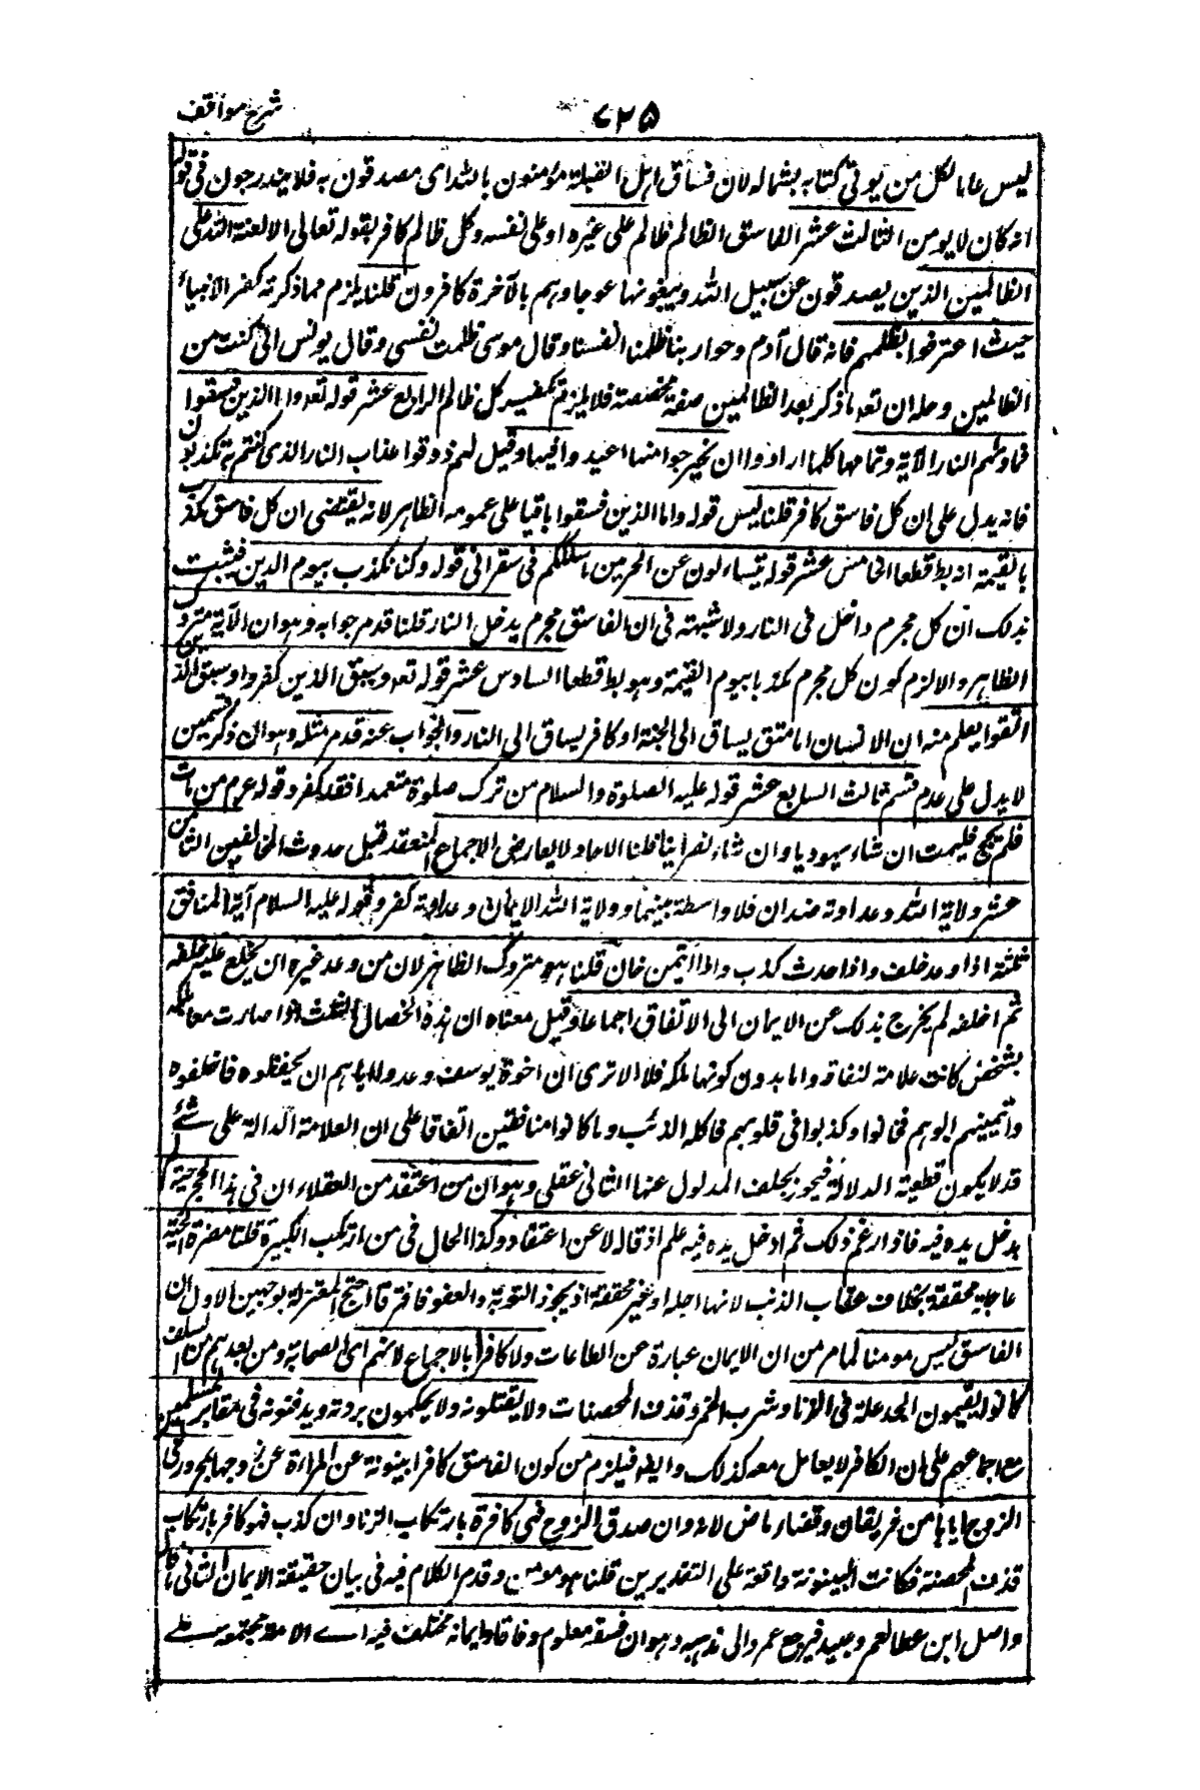 شرح مواقف
٧٢٥
ليس عاما لكل من يوتى كتابه بشماله لان فساق اهل القبلة مؤمنون بالله اى مصدقون به فلا يندرجون فى قوله
انه كان لا يومن الثالث عشر الفاسق الظالم ظالم على غيره او على نفسه وكل ظالم كافر بقوله تعالى الا لعنة الله على
الظالمين الذين يصدقون عن سبيل الله ويبغونها عوجا وهم بالآخرة كافرون قلنا يلزم مما ذكرته كفر الانبياء
حيث اعترفوا بظلمهم فانه قال آدم وحوا ربنا ظلمنا انفسنا وقال موسى ظلمت نفسى وقال يونس انى كنت من
الظالمين وحله ان تعه ما ذكر بعد الظالمين صفة مخصصة فلا يلزم تكفير كل ظالم الرابع عشر قوله تعه واما الذين فسقوا
فماوىهم النار الآية وتمامها كلما ارادوا ان يخرجوا منها اعيدوا فيها وقيل لهم ذوقوا عذاب النار الذى كنتم به تكذبون
فانه يدل على ان كل فاسق كافر قلنا ليس قوله واما الذين فسقوا باقيا على عمومه الظاهر لانه يقتضى ان كل فاسق مكذب
بالقيمة انه بط قطعا الخامس عشر قوله تيساءلون عن المجرمين ما سلككم فى سقر الى قوله وكنا نكذب بيوم الدين فيثبت
بذلك ان كل مجرم داخل فى النار ولا شبهة فى ان الفاسق مجرم يدخل النار قلنا قدم جوابه وهو ان الآية متروك
الظاهر والا لزم كون كل مجرم مكذبا بيوم القيمة وهو بط قطعا السادس عشر قوله تعه وسيق الذين كفروا وسيق الذين
اتقوا يعلم منه ان الانسان اما متق يساق الى الجنة او كافر يساق الى النار والجواب عنه قدم مثله وهو ان ذكر قسمين
لا يدل على عدم قسم ثالث السابع عشر قوله عليه الصلوة والسلام من ترك صلوة متعمدا فقد كفر وقوله عرم من مات
فلم يحج فليمت ان شاء يهوديا وان شاء نصرانيا قلنا الاحاد لا يعارض الاجماع المنعقد قبل حدوث المخالفين الثامن
عشر ولاية الله وعداوته ضدان فلا واسطة بينهما وولاية الله الايمان وعداوته كفر وقوله عليه السلام آية المنافق
ثلثة اذا وعد خلف واذا حدث كذب واذا ائتمن خان قلنا هو متروك الظاهر لان من وعد غيره ان يخلع عليه خلعة
ثم اخلفه لم يخرج بذلك عن الايمان الى الاتفاق اجماعا وقيل معناه ان هذه الخصال الثلث اذا صارت معا ملكة
بشخص كانت علامة لنفاقه واما بدون كونها ملكة فلا الا ترى ان اخوة يوسف وعدوا اباهم ان يحفظوه فاخلفوه
وائتمنهم ابوهم فخانوا وكذبوا فى قولهم فاكله الذئب وما كانوا منافقين اتفاقا على ان العلامة الدالة على شئ
قد لا يكون قطعية الدلالة فيجوز تخلف المدلول عنها الثانى عقلى وهو ان من اعتقد من العقلاء ان فى هذا الجحر حية لم
يدخل يده فيه فاذا زعم ذلك ثم ادخل يده فيه علم انه قاله لا عن اعتقاد وكذا الحال فى من ارتكب الكبيرة قلنا مضرة الحية
عاجلة محققة بخلاف عقاب الذنب لانها اجلة او غير محققة اذ يجوز التوبة والعفو فافترقا احتج المعتزلة بوجهين الاول ان
الفاسق ليس مومنا لما مر من ان الايمان عبارة عن الطاعات ولا كافرا بالاجماع لانهم اى الصحابة ومن بعدهم من السلف
كانوا يقيمون الحد علة فى الزنا وشرب الخمر وقذف المحصنات ولا يقتلونه ولا يحكمون بردته ويدفنونه فى مقابر المسلمين
مع اجماعهم على ان الكافر لا يعامل معه كذلك وايضا فيلزم من كون الفاسق كافرا بينونة عن المراءة عن زوجها بمجرد رمى
الزوج اياها من غير لعان وقضاء قاض لانه وان صدق الزوج فهى كافرة بارتكاب الزنا وان كذب فهو كافر بارتكاب
قذف المحصنة فكانت البينونة واقعة على التقديرين قلنا هو مومن وقدم الكلام فيه فى بيان حقيقة الايمان الثانى ما قاله
واصل ابن عطا لعمرو عبيد فرجع عمرو الى مذهبه وهو ان فسقه معلوم وفاقا وايمانه مختلف فيه اے الامة مجتمعة على